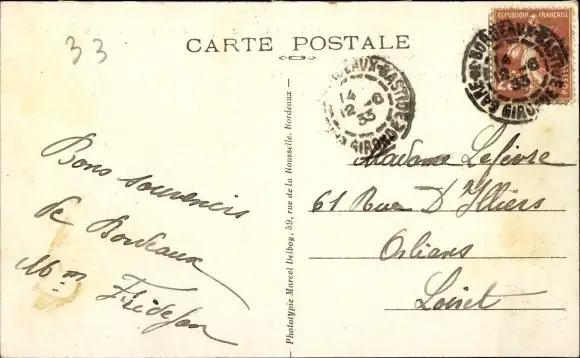 33
CARTE POSTALE
RÉPUBLIQUE FRANÇAISE
POSTES
BORDEAUX-BASTIDE
GARE
GIRONDE
BORDEAUX-BASTIDE
GIRONDE
Bons souvenirs
de Bordeaux
Mm
Phototypie Marcel Delboy, 59, rue de la Rousselle, Bordeaux
Madame Lefèvre
61 Rue D'Illiers
Orléans
Loiret